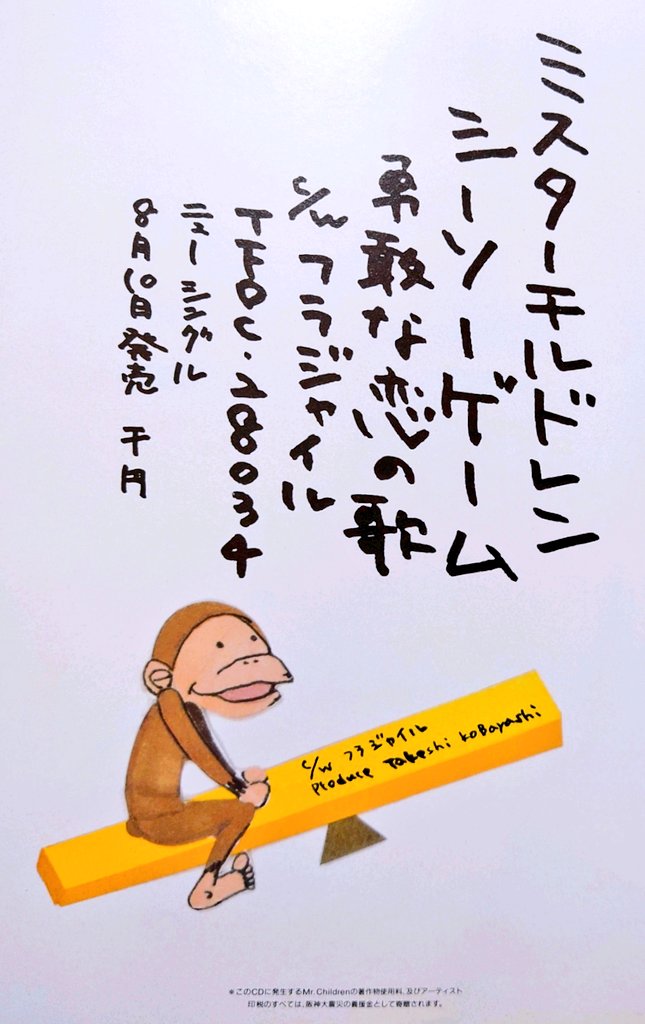 ミスターチルドレン
シーソーゲーム
勇敢な恋の歌
c/w フラジャイル
TFDC・28034
ニューシングル
8月10日発売 千円
c/w フラジャイル
Produce Takeshi Kobayashi
＊このCDに発生するMr.Childrenの著作物使用料、及びアーティスト
印税のすべては、阪神大震災の義援金として寄贈されます。